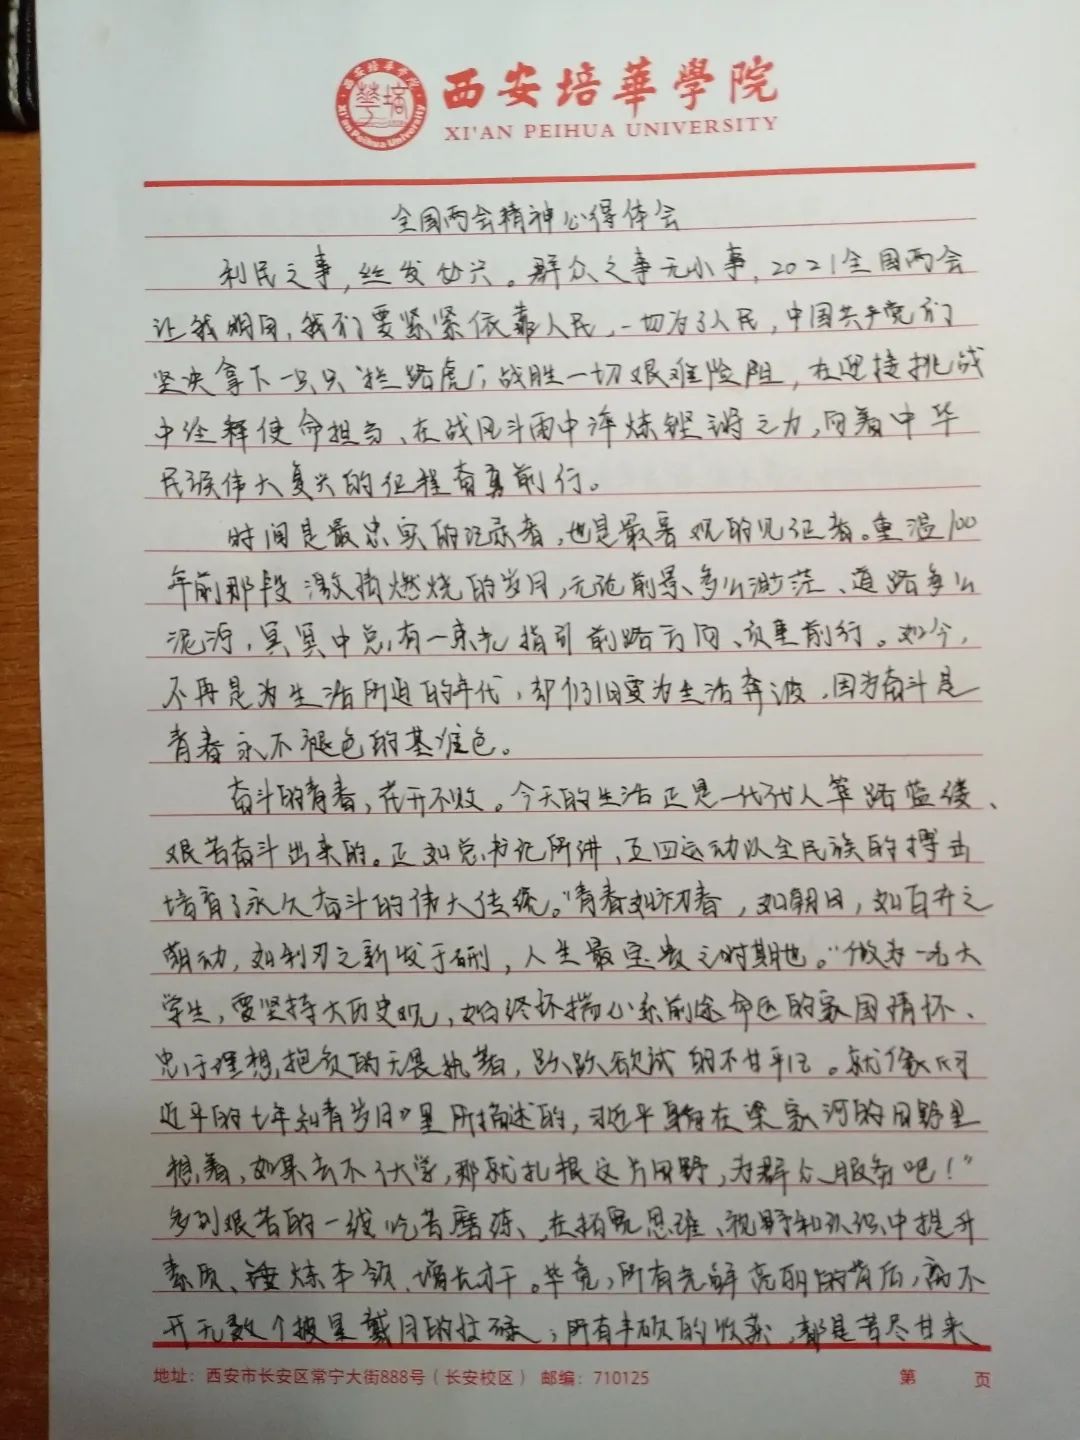 西安培華學院
XI'AN PEIHUA UNIVERSITY
全国两会精神心得体会
利民之事，丝发必兴。群众之事无小事，2021全国两会
让我明白，我们要紧紧依靠人民，一切为了人民，中国共产党们
坚决拿下一只只“拦路虎”，战胜一切艰难险阻，在迎接挑战
中诠释使命担当、在战风斗雨中淬炼铿锵之力，向着中华
民族伟大复兴的征程奋勇前行。
时间是最忠实的记录者，也是最客观的见证者。重温100
年前那段激情燃烧的岁月，无论前景多么渺茫、道路多么
泥泞，冥冥中总有一束光指引前路方向、负重前行。如今，
不再是为生活所迫的年代，却仍旧要为生活奔波，因为奋斗是
青春永不褪色的基准色。
奋斗的青春，花开不败。今天的生活正是一代代人筚路蓝缕、
艰苦奋斗出来的。正如总书记所讲，五四运动以全民族的搏击
培育了永久奋斗的伟大传统。“青春如初春，如朝日，如百卉之
萌动，如利刃之新发于硎，人生最宝贵之时期也。”做为一名大
学生，要坚持大历史观，始终怀揣心系前途命运的家国情怀、
忠于理想抱负的无畏执着，跃跃欲试的不甘平凡。就像《习
近平的七年知青岁月》里所描述的，习近平身在梁家河的田野里
想着，如果去不了大学，那就扎根这片田野，为群众服务吧！”
多到艰苦的一线吃苦磨练、在拓宽思维、视野和认识中提升
素质、锤炼本领、增长才干。毕竟，所有光鲜亮丽的背后，离不
开无数个披星戴月的拉碌；所有丰硕的收获，都是苦尽甘来
地址：西安市长安区常宁大街888号（长安校区） 邮编：710125
第 页